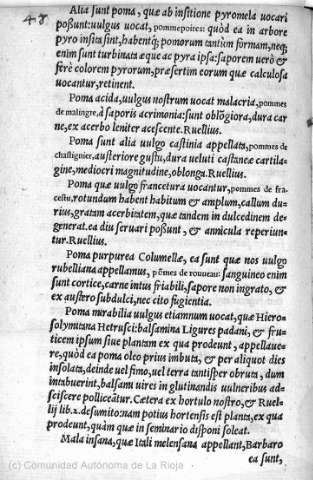 48
Alia sunt poma, quæ ab insitione pyromela uocari
possunt: uulgus uocat, pommepoires: quòd ea in arbore
pyro insita sint, habentq́; pomorum tantùm formam, neq;
enim sunt turbinata æque ac pyra ipsa: saporem uerò &
ferè colorem pyrorum, præsertim eorum quæ calculosa
uocantur, retinent.
Poma acida, uulgus nostrum uocat malacria, pommes
de malingre, à saporis acrimonia: sunt oblōgiora, dura car
ne, ex acerbo leniter acescente. Ruellius.
Poma sunt alia uulgo castinia appellata, pommes de
chastignier, austeriore gustu, dura ueluti castaneæ cartila-
gine, mediocri magnitudine, oblonga. Ruellius.
Poma quæ uulgo francetura uocantur, pommes de fra-
cestu, rotundum habent habitum & amplum, callum du-
rius, gratam acerbitatem, quæ tandem in dulcedinem de-
generat. ea diu seruari possunt, & annicula reperiun-
tur. Ruellius.
Poma purpurea Columellæ, ea sunt quæ nos uulgo
rubelliana appellamus, pōmes de rouueau: sanguineo enim
sunt cortice, carne intus friabili, sapore non ingrato, &
ex austero subdulci, nec cito fugientia.
Poma mirabilia uulgus etiamnum uocat, quæ Hiero-
solymitana Hetrusci: balsamina Ligures padani, & fru-
ticem ipsum siue plantam ex qua prodeunt, appellaue-
re, quòd ea poma oleo prius imbuta, & per aliquot dies
insolata, deinde uel fimo, uel terra tantisper obruta, dum
intabuerint, balsami uires in glutinandis uulneribus ad-
sciscere polliceãtur. Cætera ex hortulo nostro, & Ruel-
lij lib. 2. desumito: nam potius hortensis est planta, ex qua
prodeunt, quàm quæ in seminario disponi soleat.
Mala insana, quæ Itali melensana appellant, Barbaro
ea sunt,
(c) Comunidad Autónoma de La Rioja